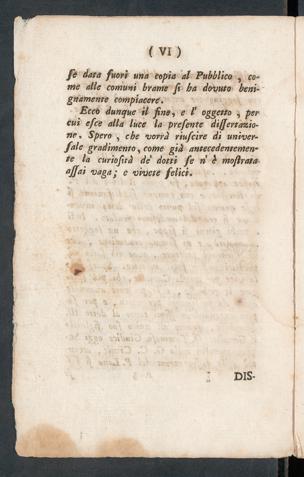 ( VI )
se data fuori una copia al Pubblico, co-
me alle comuni brame si ha dovuto beni-
gnamente compiacere.
Ecco dunque il fine, e l' oggetto, per
cui esce alla luce la presente dissertazio-
ne. Spero, che vorrà riuscire di univer-
sale gradimento, come già antecedentemen-
te la curiosità de' dotti se n' è mostrata
assai vaga; e vivete felici.
DIS-